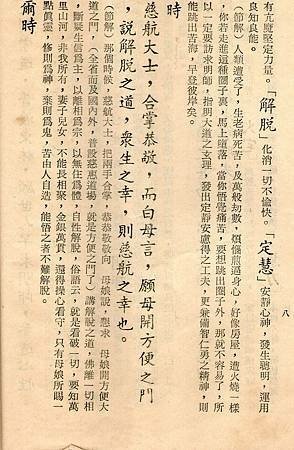 有充塵堅定力量。「解脫」化消一切不愉快。「定慧」安靜心神,發生聰明,運用
良知良能。
(節解)人類遭受了,生老病死苦,及萬般劫數,煩惱煎逼身心,好像房屋,遭火燒一樣
,你若走進這種圈子裏,馬上墮落,當你悟覺痛苦,要想跳出圈子外,那就不容易了,所
以一定要訪求明師,指明大道之玄理,發出定靜安慮得之工夫,更兼備智仁勇之精神,則
能跳出苦海,早登彼岸矣。
時
慈航大士,合掌恭敬,而白母言,願母開方便之門
,說解脫之道,衆生之幸,則慈航之幸也。
(節解)那個時候,慈航大士,把兩手合掌,恭恭敬敬向 母娘說,懇求 母娘開方便大
道之門,(全省而及國內外,普設慈惠道場,就是方便之門)講解脫之道,佛離一切相
,斷疑生信爲主,以離相爲宗,以無住爲體,自性解脫,俗語云,就是看破一切,要知萬
里山河,非我所有,妻子兒女,不能長相聚,金銀萬貫,還得操心看守,只有母娘所賜一
點眞靈,修則爲神,棄則爲鬼,苦由人自造,能悟之者不難解脫。
爾時
八